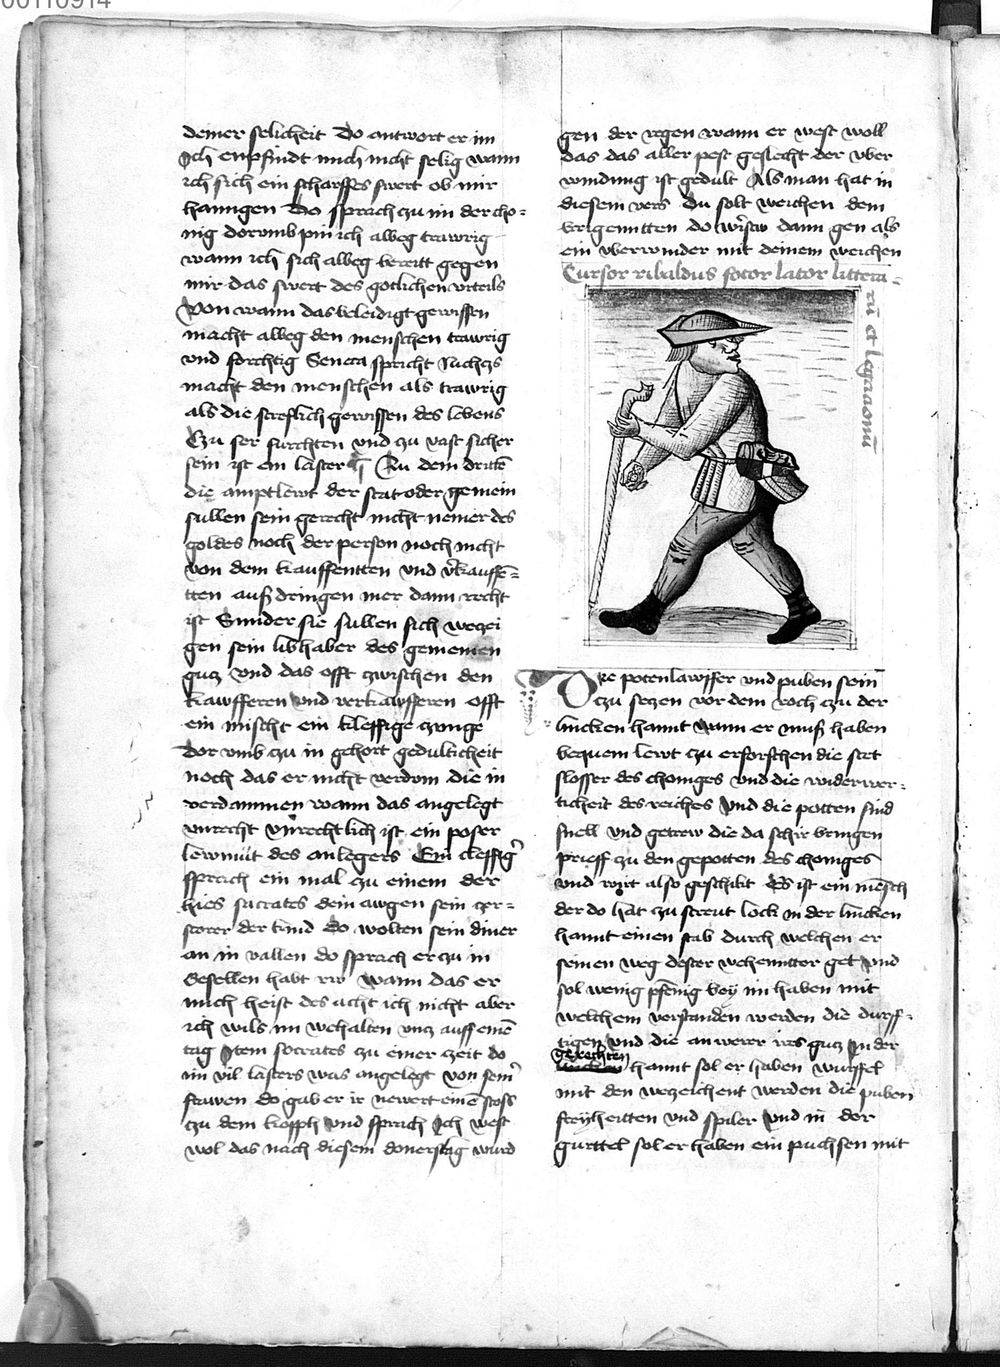 00110914
deiner selicheit Do antwort er im
Ich enpfindt mich nicht selig wann
ich sich ein scharffes swert ob mir
hanngen Do sprach zu im der cho=
nig dorumb pin ich albeg trawrig
wann ich sich albeg bereitt gegen
mir das swert des gotlichen vrteils
Von wann das beleidigt gewissen
macht albeg den menschen trawrig
vnd forchtig Seneca spricht Nichczs
macht den menschen als trawrig
als die streflich gewissen des lebens
Czu ser furchten vnd zu vast sicher
sein ist ein laster Zu dem dritten
die amptlewt der stat oder gemein
sullen sein gerecht nicht nemer des
goldes noch der person noch nicht
von dem kauffentten vnd v̈kauffē=
tten auß dringen mer dann recht
ist Sunder sie sullen sich wegei
gen sein libhaber des gemeinen
gucz vnd das offt zwischen den
kawfferen vnd verkawfferen offt
ein mischt ein kleffige zunge
dor vmb zu in gehort gedulticheit
noch das er nicht verdum die in
verdammen wann das angelegt
vnrecht vnrechtlich ist ein poser
lewmut des anlegers Ein cleffig̉
sprach ein mal zu einem der
hies sucrates dein awgen sein zer=
storer der kind do wolten sein diner
an in vallen do sprach er zu in
Gesellen habt rw wann das er
mich heist des acht ich nicht aber
ich wils im wehalten vncz auff einē
tag Item socrates zu einer zeit do
im vil lasters was angelegt von sein̉
frawen do gab er ir newert einē stoss
zu dem kopph vnd sprach Ich west
wol das nach diesem donerslag wurd
gen der regen wann er west woll
das das aller pest geslecht der vber
windung ist gedult Als man hat in
diesem vers du solt weichen dem
krigenntten do wirstw dann gen als
ein vberwinder mit deinem weichen
Cursor ribaldus lator litterā=
rū et legacionū
Dye potenlawffer vnd puben sein
czu seczen vor dem roch zu der
lincken hannt wann er muß haben
bequem lewt zu erforschen die stet
slosser des choniges vnd die widerwer=
ticheit des reiches vnd die potten sind
snell vnd getrew die da schir bringen
prieff zu den gepotten des choniges
vnd wirt also geschikt Es ist ein mēsch
der do hat zu strewt lock in der lincken
hannt einen stab durch welchen er
seinen weg dester wehenntter get vnd
sol wenig pfenig bey im haben mit
welchem verstanden werden die durff=
tigen vnd die an werer irs gucz In der
gerechten
hannt sol er haben wurffel
mit den wegeichent werden die puben
freyheitten vnd spiler vnd in der
gurttel sol er haben ein puchsen mit